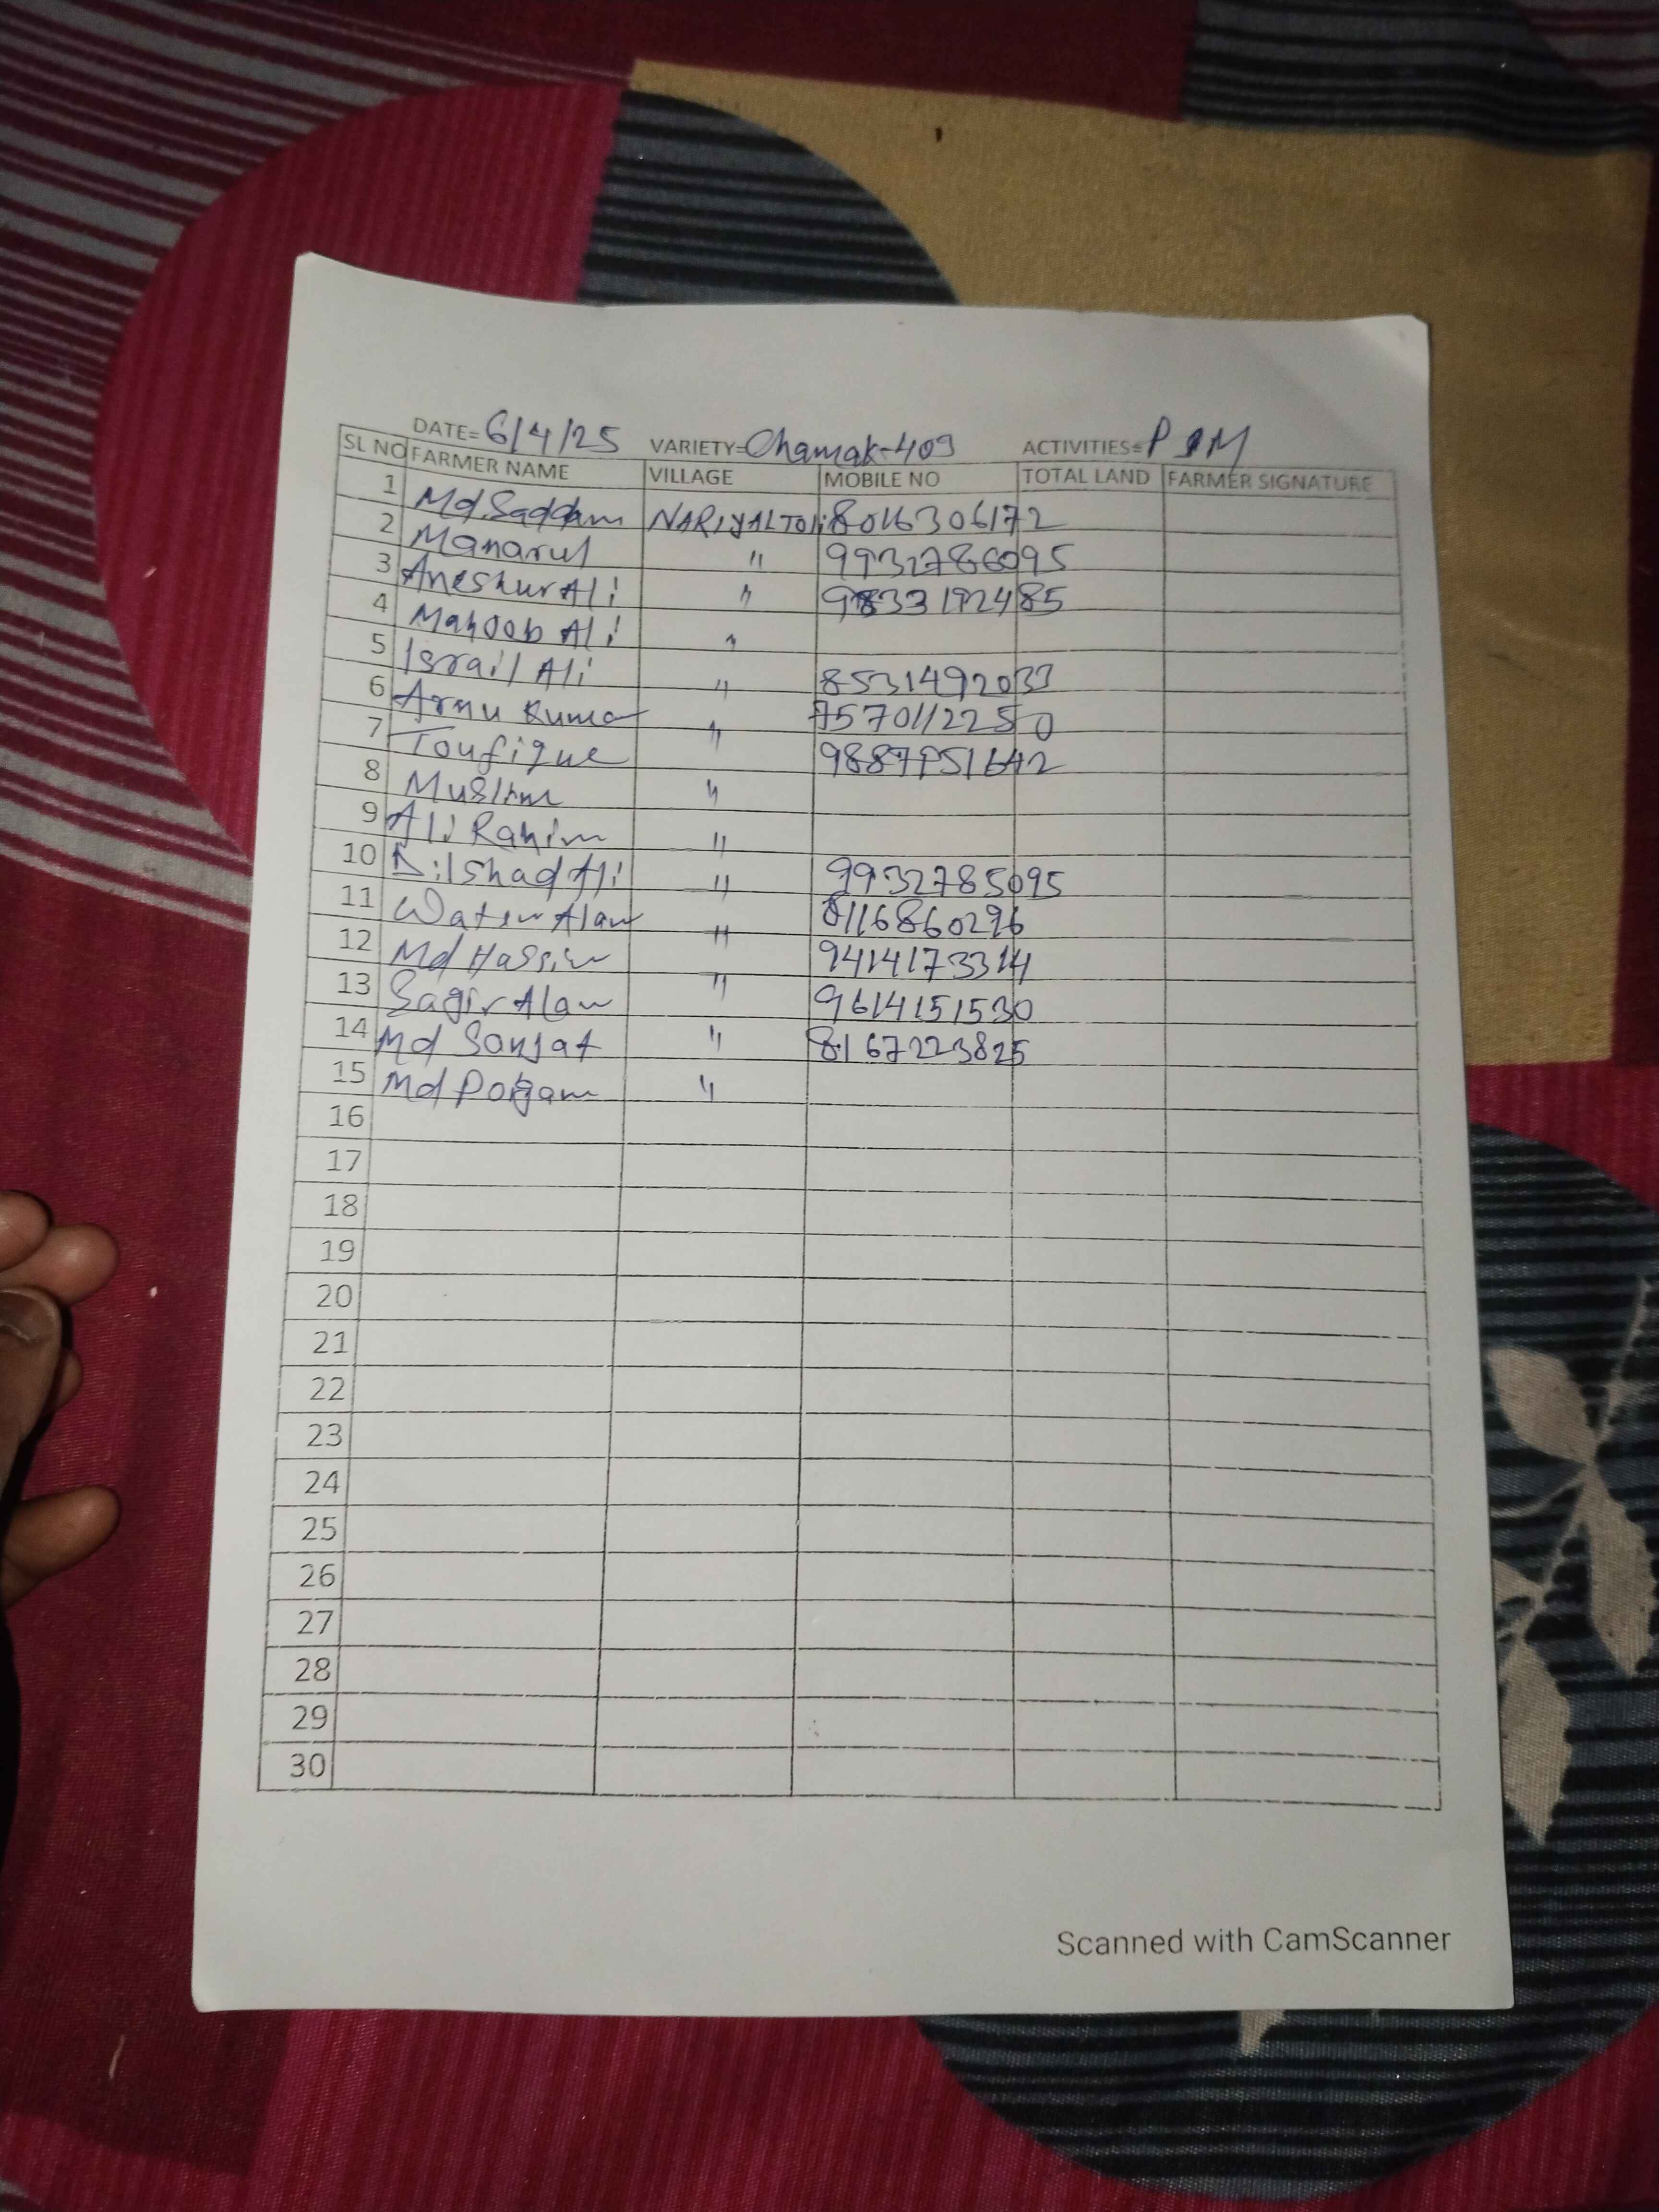 DATE= 6/4/25 VARIETY= Chamak-409 ACTIVITIES= PSM
SL NO FARMER NAME VILLAGE MOBILE NO TOTAL LAND FARMER SIGNATURE
1 Md. Saddam NARIYALTOli 8016306172
2 Manarul " 9932786095
3 Aneshur Ali " 9833192485
4 Mahoob Ali "
5 Israil Ali " 8531492033
6 Kumar " 7570112250
7 Toufique 9887951642
8 Muslim "
9 Ali Rahim "
10 Dilshad Ali " 9932785095
11 Alam " 8116860296
12 Md Hassim " 9414173314
13 Sagir Alam " 9614151530
14 Md Sanjat " 8167223825
15 Md "
16
17
18
19
20
21
22
23
24
25
26
27
28
29
30
Scanned with CamScanner